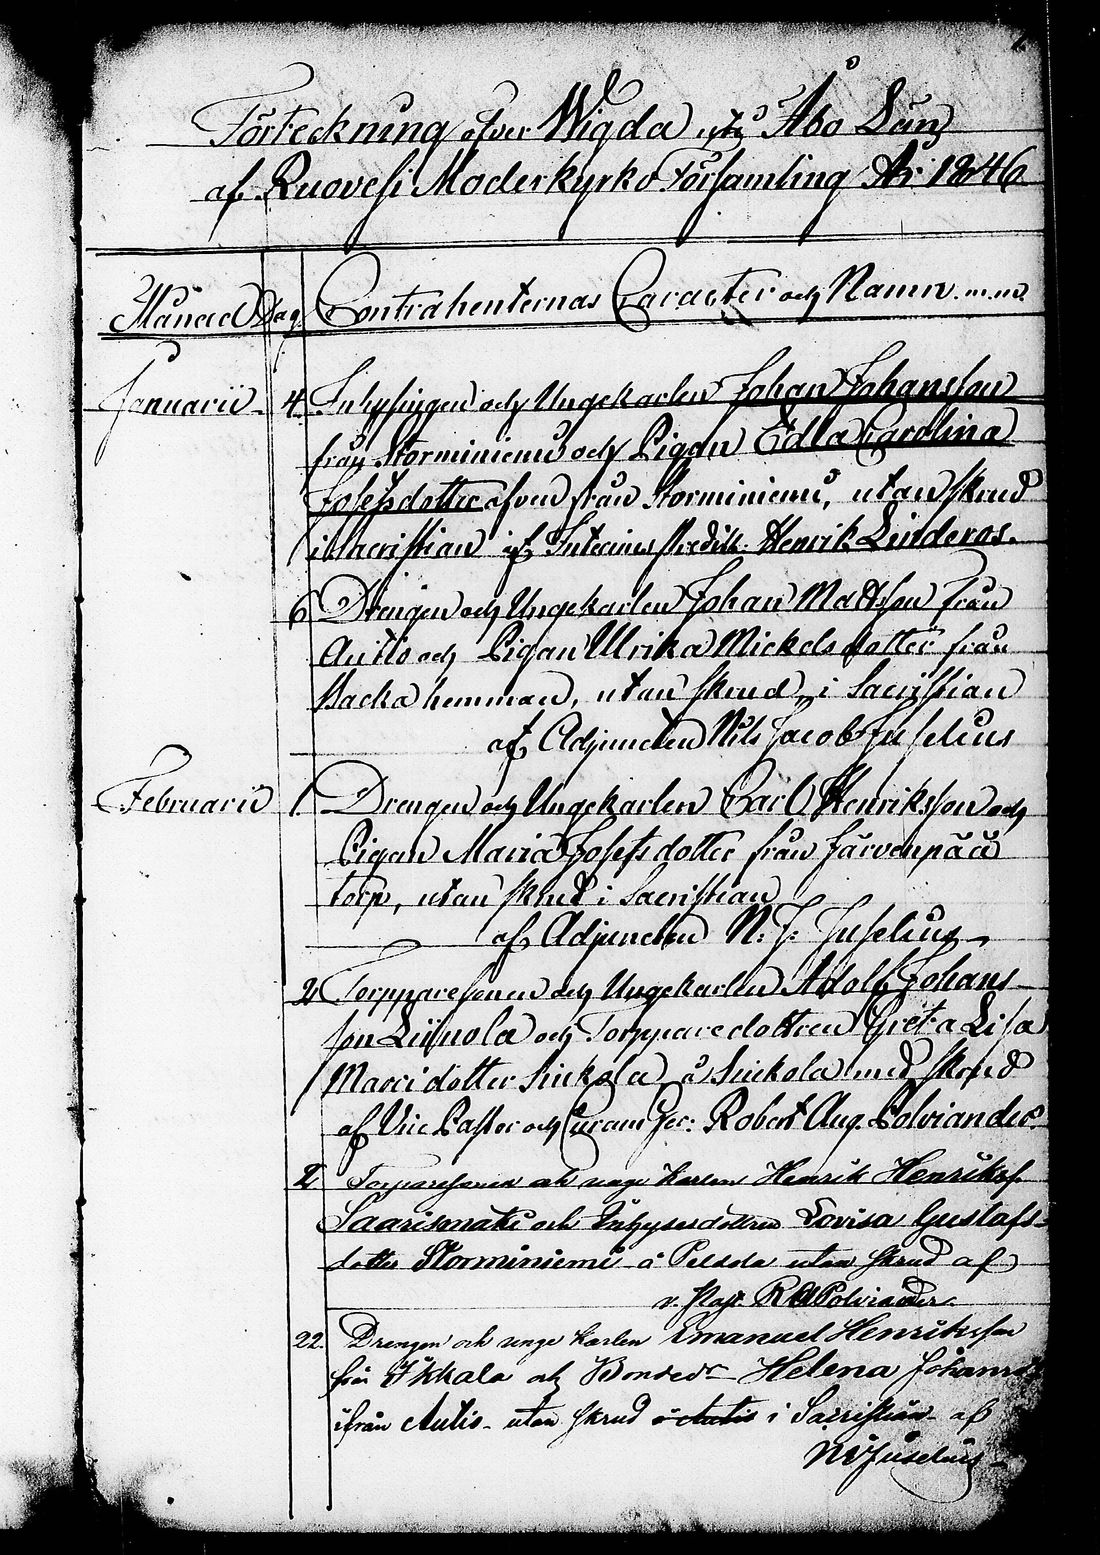 1.
Förteckning öfver Wigda uti Åbo Län
af Ruovesi Moderkyrko Församling År 1846
Månad Dag. Contrahenternas Caracter och Namn m.m.
Januarii 4. Inhysingen och Ungekarlen Johan Johansson
från Storminiemi och Pigan Edla Carolina
Josefsdotter äfven från Storminiemi, utan skrud
i Sacristian af Henrik Linderos.
6 Drengen och Ungekarlen Johan Mattsson från
Autio och Pigan Ulrika Mickelsdotter från
Backa hemman, utan skrud, i Sacristian
af Adjuncten Nils Jacob Juselius
Februarii 1. Drengen och Ungekarlen Carl Henriksson och
Pigan Maria Josefsdotter från Järvenpää
torp, utan skrud i Sacristian
af Adjuncten N. J. Juselius
2 Torpparesonen och Ungekarlen Adolf Johans
son Liinola och Torpparedottren Greta Lisa
Marcidotter Sinkola, å Sinkola med skrud
af Vice Pastor och Robert Aug. Polviander.
2 Torparesonen och unge karlen Henrik Henrikss.
Saarismäki och Inhysesdottren Lovisa Gustafs-
dotter Storminiemi å Peldola utan skrud af
v. Past. R A Polviander.
22. Drengen och unge karlen Emanuel Henriksson
från Ikkala och Bondedr Helena Johansd.
ifrån Autio utan skrud å Autio i Sacristian af
N J Juselius